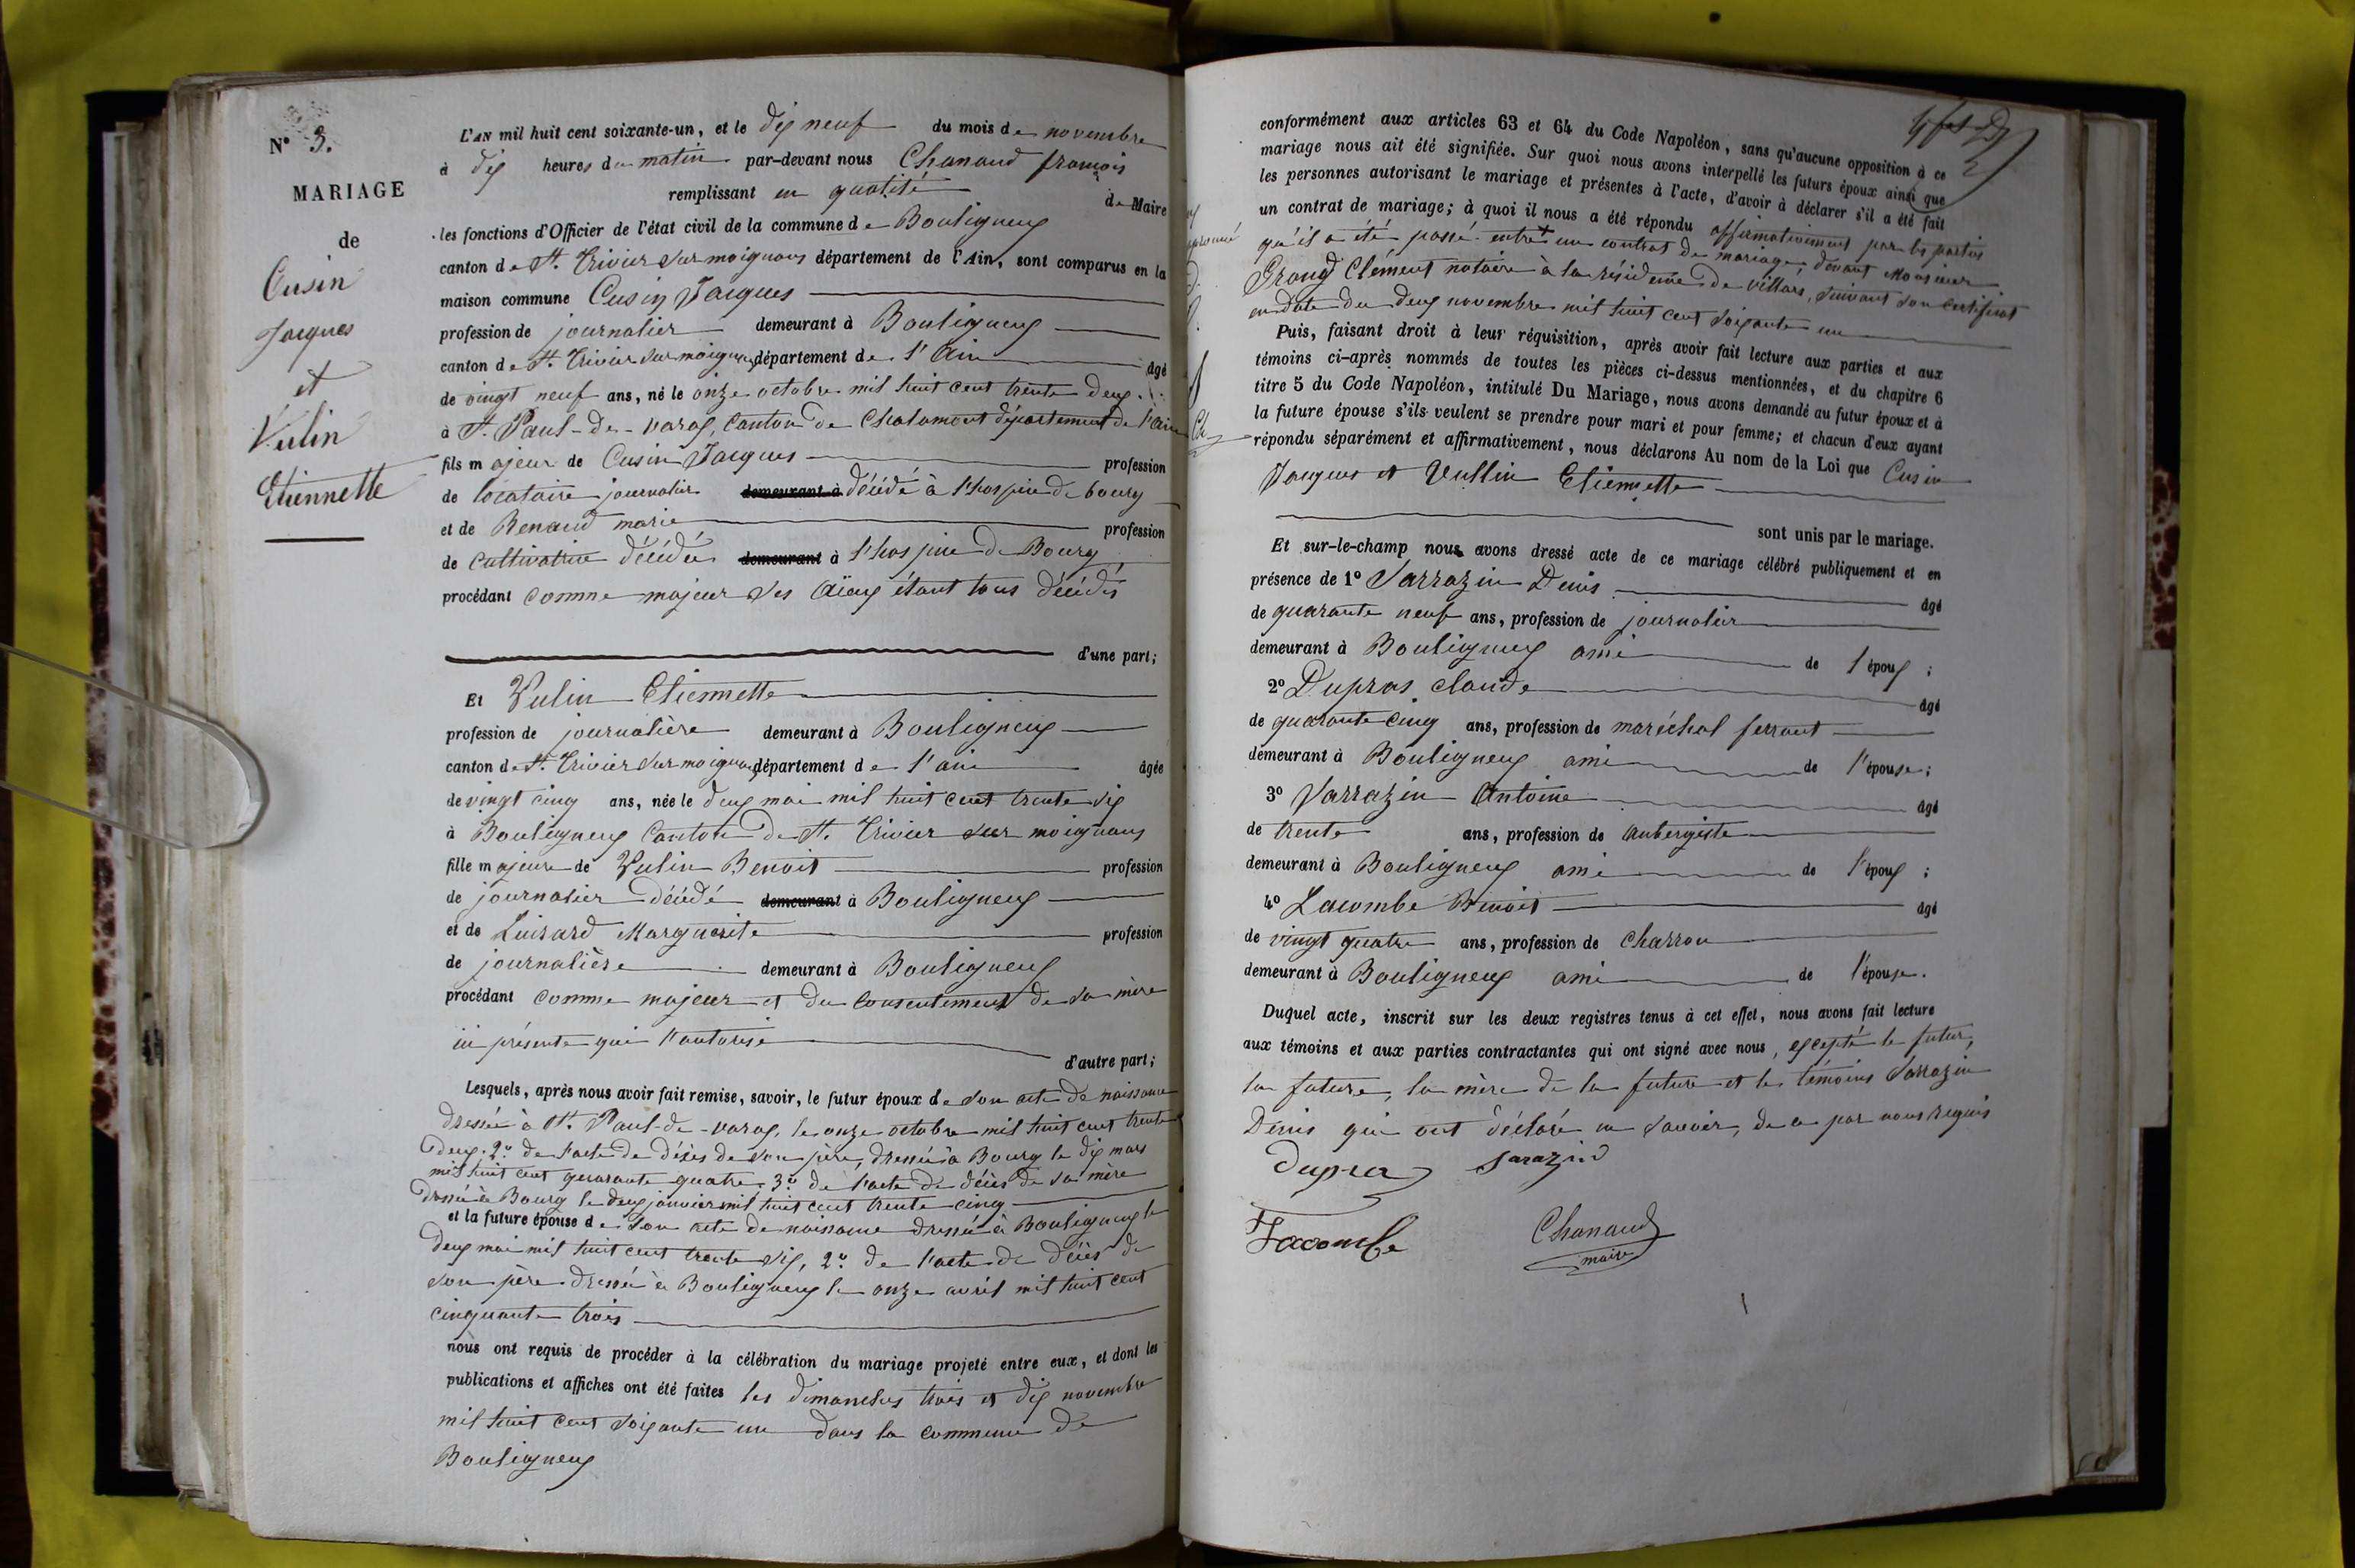 N° 3.
MARIAGE
de
Cusin
Jacques
et
Vulin
Etiennette
L'AN mil huit cent soixante-un, et le dix neuf du mois de novembre
à dix heures du matin par-devant nous Chanaud françois
remplissant en qualité de Maire
les fonctions d'Officier de l'état civil de la commune de Bouligneux
canton de St. Trivier sur moignans département de l'Ain, sont comparus en la
maison commune Cusin Jacques
profession de journalier demeurant à Bouligneux
canton de St. Trivier sur moignans département de l'Ain âgé
de vingt neuf ans, né le onze octobre mil huit cent trente deux
à St. Paul-de-varax, Canton de Chalamont département de l'Ain
fils majeur de Cusin Jacques profession
de locataire journalier demeurant à décédé à l'hospice de bourg
et de Renaud marie profession
de cultivatrice décédée demeurant à l'hospice de Bourg
procédant comme majeur ses aïeux étant tous décédés
d'une part;
Et Vulin Etiennette
profession de journalière demeurant à Bouligneux
canton de St. Trivier sur moignans département de l'ain âgée
de vingt cinq ans, née le deux mai mil huit cent trente six
à Bouligneux Canton de St. Trivier sur moignans
fille majeure de Vulin Benoit profession
de journalier décédé demeurant à Bouligneux
et de Luisard Marguerite profession
de journalière demeurant à Bouligneux
procédant comme majeur et du consentement de sa mère
ici présente qui l'autorise
d'autre part;
Lesquels, après nous avoir fait remise, savoir, le futur époux de son acte de naissance
dressé à St. Paul-de-varax, le onze octobre mil huit cent trente
deux. 2° de l'acte de décès de son père, dressé à Bourg le dix mars
mil huit cent quarante quatre. 3° de l'acte de décès de sa mère
dressé à Bourg le deux janvier mil huit cent trente cinq
et la future épouse de son acte de naissance dressé à Bouligneux le
deux mai mil huit cent trente six, 2° de l'acte de décès de
son père dressé à Bouligneux le onze avril mil huit cent
cinquante trois
nous ont requis de procéder à la célébration du mariage projeté entre eux, et dont les
publications et affiches ont été faites les dimanches trois et dix novembre
mil huit cent soixante un dans la commune de
Bouligneux
conformément aux articles 63 et 64 du Code Napoléon, sans qu'aucune opposition à ce
mariage nous ait été signifiée. Sur quoi nous avons interpellé les futurs époux ainsi que
les personnes autorisant le mariage et présentes à l'acte, d'avoir à déclarer s'il a été fait
un contrat de mariage; à quoi il nous a été répondu affirmativement par les parties
qu'il a été passé entre un contrat de mariage devant Monsieur
Grand Clément notaire à la résidence de villars, suivant son certificat
en date du deux novembre mil huit cent soixante un
Puis, faisant droit à leur réquisition, après avoir fait lecture aux parties et aux
témoins ci-après nommés de toutes les pièces ci-dessus mentionnées, et du chapitre 6
titre 5 du Code Napoléon, intitulé Du Mariage, nous avons demandé au futur époux et à
la future épouse s'ils veulent se prendre pour mari et pour femme; et chacun d'eux ayant
répondu séparément et affirmativement, nous déclarons Au nom de la Loi que Cusin
Jacques et Vullin Etiennette
sont unis par le mariage.
Et sur-le-champ nous avons dressé acte de ce mariage célébré publiquement et en
présence de 1° Sarrazin Denis âgé
de quarante neuf ans, profession de journalier
demeurant à Bouligneux ami de l'époux;
2° Dupras claude âgé
de quarante cinq ans, profession de maréchal ferrant
demeurant à Bouligneux ami de l'épouse;
3° Sarrazin Antoine âgé
de trente ans, profession de Aubergiste
demeurant à Bouligneux ami de l'époux;
4° Lacombe Benoit âgé
de vingt quatre ans, profession de Charron
demeurant à Bouligneux ami de l'épouse.
Duquel acte, inscrit sur les deux registres tenus à cet effet, nous avons fait lecture
aux témoins et aux parties contractantes qui ont signé avec nous, excepté le futur,
la future, la mère de la future et les témoins Sarrazin
Denis qui ont déclaré ne savoir, de ce par nous requis
Dupra Sarazin
Lacombe Chanaud
maire